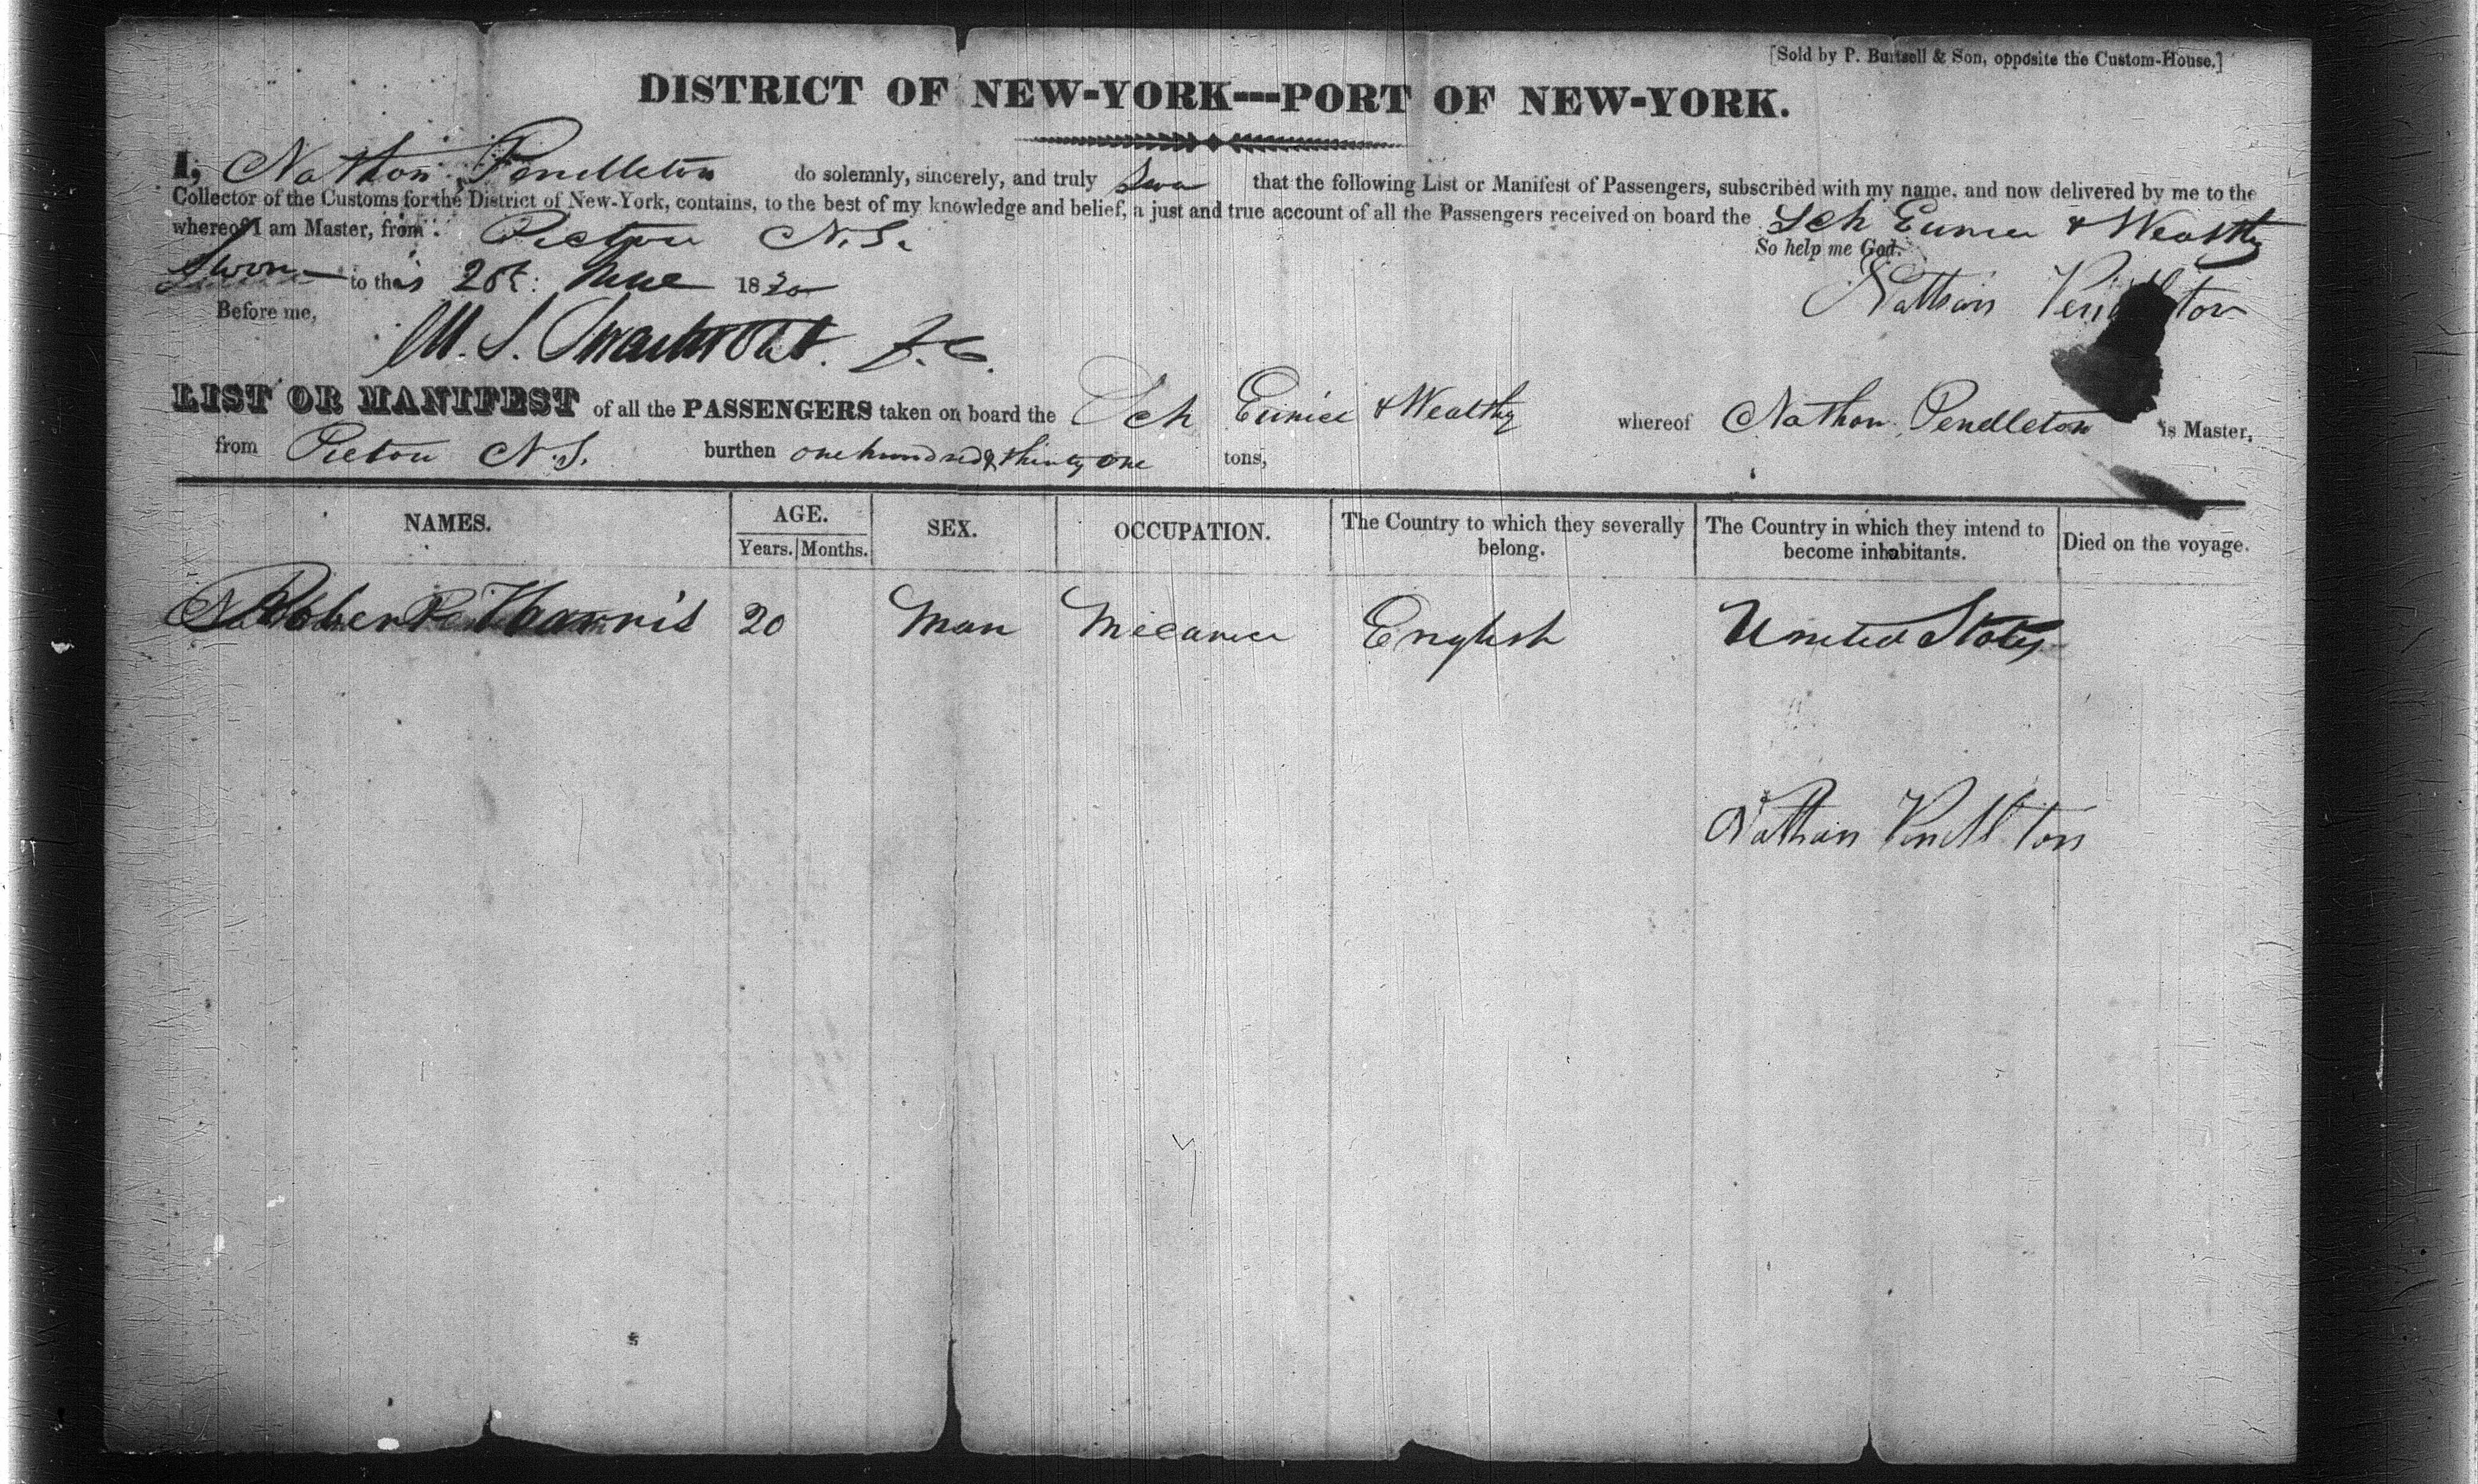 [Sold by P. Burtsell & Son, opposite the Custom-House.]
DISTRICT OF NEW-YORK---PORT OF NEW-YORK.
I, Nathan Pendleton do solemnly, sincerely, and truly that the following List or Manifest of Passengers, subscribed with my name, and now delivered by me to the
Collector of the Customs for the District of New-York, contains, to the best of my knowledge and belief, a just and true account of all the Passengers received on board the Sch Eunice & Wealthy
whereof I am Master, from Pictou N.S.
So help me God.
Sworn to this 18
Nathan Pendleton
Before me,
LIST OR MANIFEST of all the PASSENGERS taken on board the Sch Eunice & Wealthy whereof Nathan Pendleton is Master,
from Pictou N.S. burthen one hundred & thirty one tons,
NAMES. AGE. SEX. OCCUPATION. The Country to which they severally belong. The Country in which they intend to become inhabitants. Died on the voyage.
Years. Months.
Robert Harris 20 Man Mecanic English United States
Nathan Pendleton